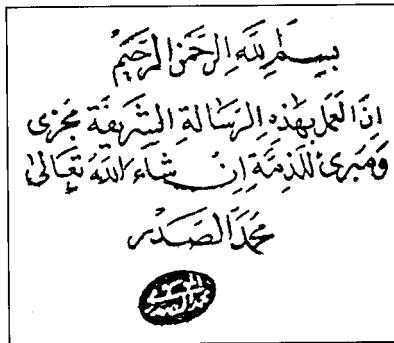 بِسْمِ اللهِ الرَّحْمنِ الرَّحِيْمِ
اِنَّ العَمَلَ بِهٰذِهِ الرِّسَالَةِ الشَّرِيفَةِ مُجْزِى
وَمُبْرِىءٌ لِلذِمَّةِ اِنْ شَاءَ اللهُ تَعَالٰى
مُحَمَّد الصَّدْر
محمد الصدر